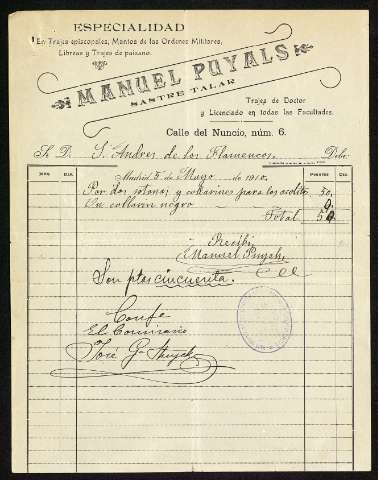 ESPECIALIDAD
En Trajes episcopales, Mantos de las Ordenes Militares,
Libreas y Trajes de paisano.
MANUEL PUYALS
SASTRE TALAR
Trajes de Doctor
y Licenciado en todas las Facultades.
Calle del Nuncio, núm. 6.
Sr. D. S. Andres de los Flamencos. Debe
Madrid 5 de Mayo de 1910.
MES. DIA. Pesetas Cts.
Por dos sotanas y collarines para los acolitos 50,
Un collarin negro 0,
Total 50,
Recibi
Manuel Puyals
Son ptas cincuenta.
Confe
El Comisario
José G.